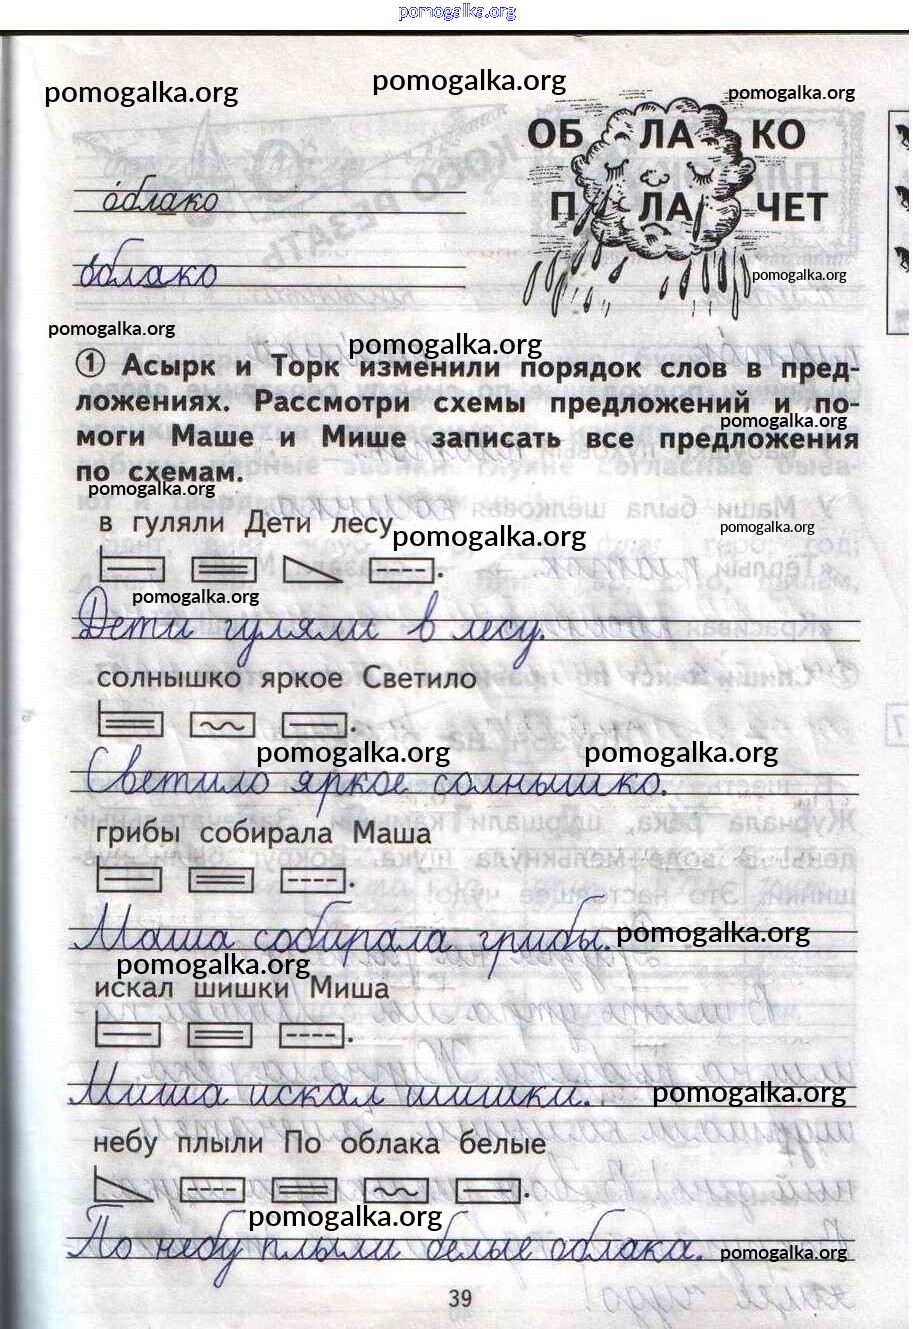 pomogalka.org
pomogalka.org pomogalka.org pomogalka.org
ОБ ЛА КО
П ЛА ЧЕТ
облако
облако
pomogalka.org
pomogalka.org pomogalka.org
① Асырк и Торк изменили порядок слов в пред-
ложениях. Рассмотри схемы предложений и по-
pomogalka.org
моги Маше и Мише записать все предложения
по схемам.
pomogalka.org
в гуляли Дети лесу
pomogalka.org pomogalka.org
pomogalka.org
Дети гуляли в лесу.
солнышко яркое Светило
pomogalka.org pomogalka.org
Светило яркое солнышко.
грибы собирала Маша
Маша собирала грибы.
pomogalka.org
pomogalka.org
искал шишки Миша
Миша искал шишки.
pomogalka.org
небу плыли По облака белые
pomogalka.org
По небу плыли белые облака.
pomogalka.org
39